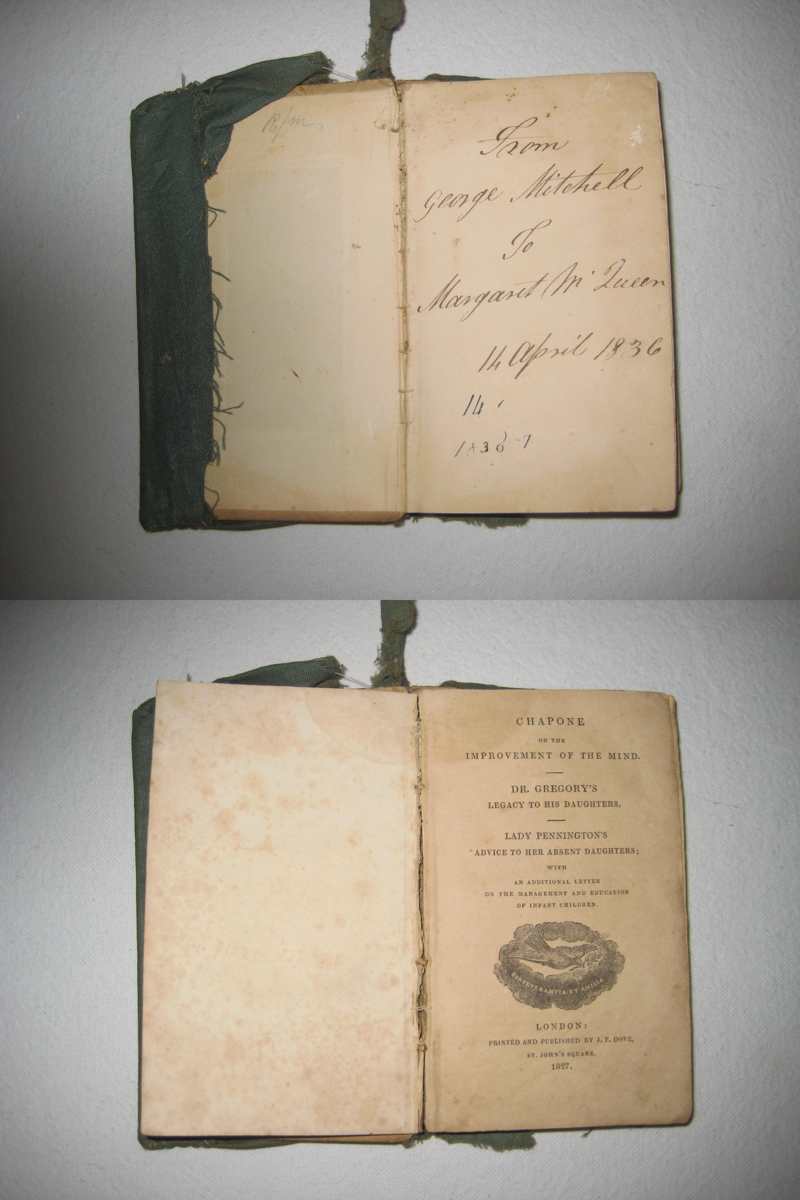 From
George Mitchell
To
Margaret Mc Queen
14 April 1836
14
CHAPONE
ON THE
IMPROVEMENT OF THE MIND.
DR. GREGORY'S
LEGACY TO HIS DAUGHTERS.
LADY PENNINGTON'S
ADVICE TO HER ABSENT DAUGHTERS;
WITH
AN ADDITIONAL LETTER
ON THE MANAGEMENT AND EDUCATION
OF INFANT CHILDREN.
PERSEVERANTIA ET AMICIS
LONDON:
PRINTED AND PUBLISHED BY J. F. DOVE,
ST. JOHN'S SQUARE.
1827.